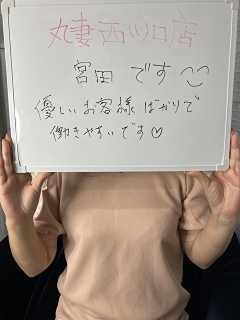 丸妻西川口店
宮田です
優しいお客様ばかりで
働きやすいです♡